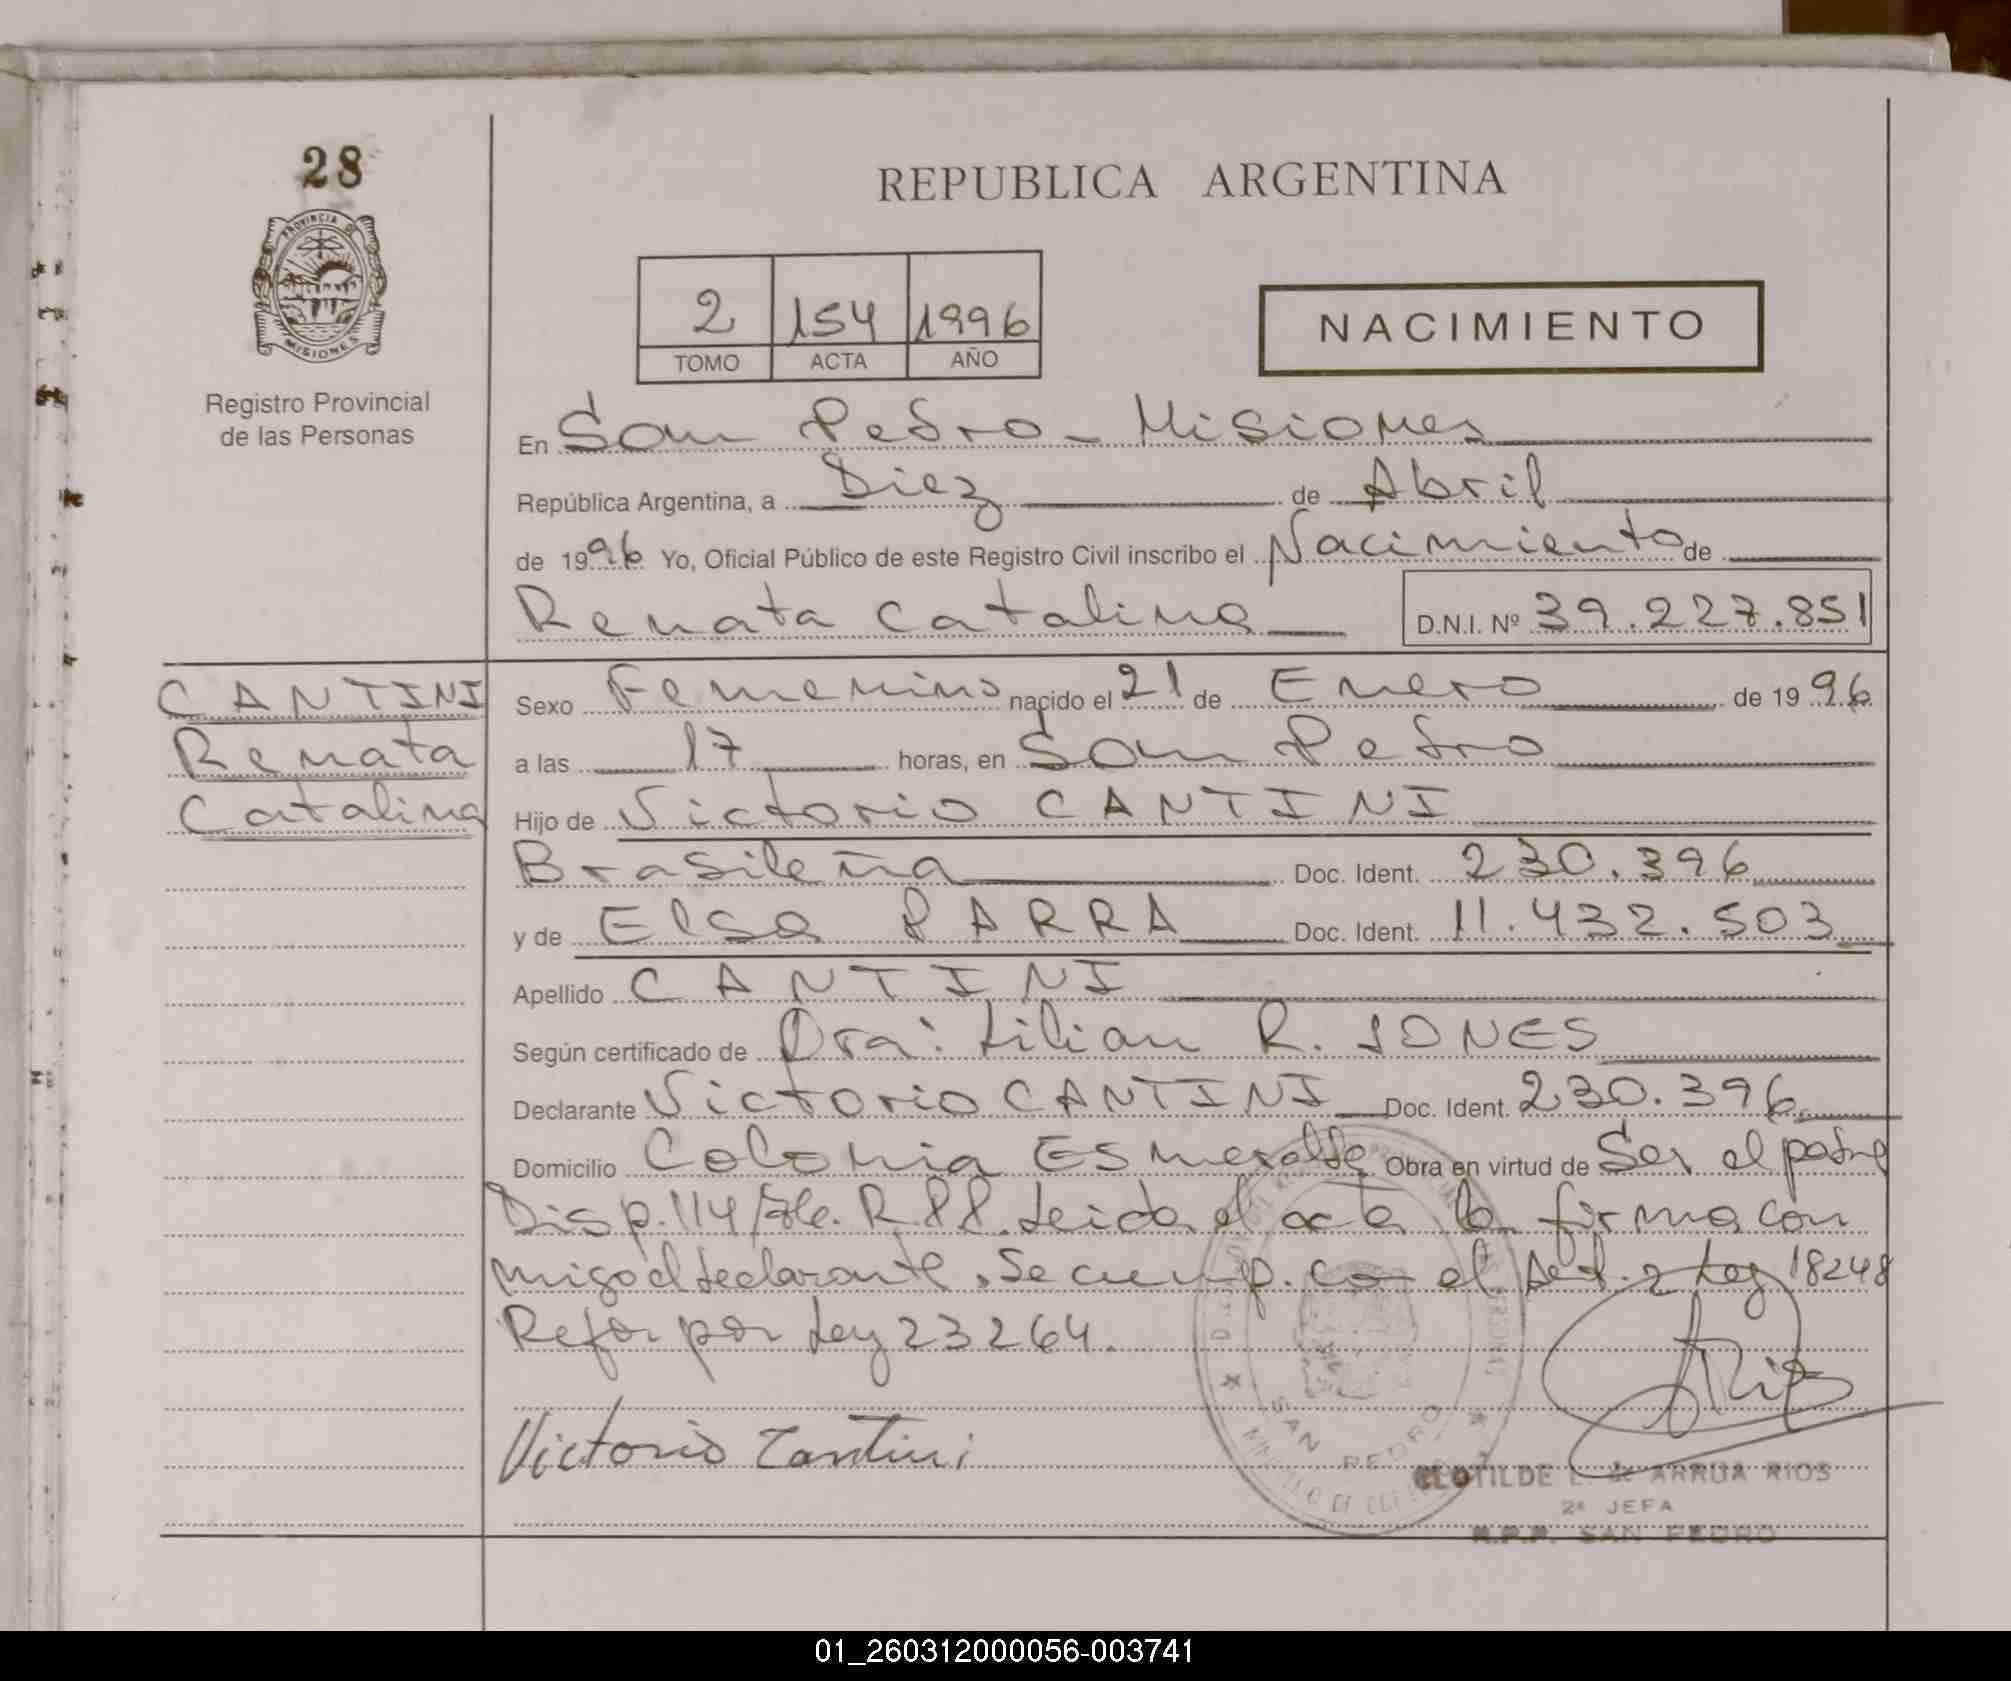 28
PROVINCIA DE
MISIONES
Registro Provincial
de las Personas
REPUBLICA ARGENTINA
2 154 1996
TOMO ACTA AÑO
NACIMIENTO
En San Pedro - Misiones
República Argentina, a Diez de Abril
de 1996 Yo, Oficial Público de este Registro Civil inscribo el Nacimiento de
Renata Catalina D.N.I. Nº 39.227.851
CANTINI
Renata
Catalina
Sexo Femenino nacido el 21 de Enero de 1996
a las 17 horas, en San Pedro
Hijo de Victorio CANTINI
Brasileña Doc. Ident. 230.396
y de Elsa PARRA Doc. Ident. 11.432.503
Apellido CANTINI
Según certificado de Dra: Lilian R. JONES
Declarante Victorio CANTINI Doc. Ident. 230.396
Domicilio Colonia Esmeralda Obra en virtud de Ser el padre
Disp. 114/86. R.88. Leida el acta la firma con
migo el declarante. Se cump. con el Art. 2 Ley 18248
Refor por Ley 23264.
Victorio Cantini
SAN PEDRO
CLOTILDE E. de ARRUA RIOS
2ª JEFA
R.P.P. SAN PEDRO
01_260312000056-003741